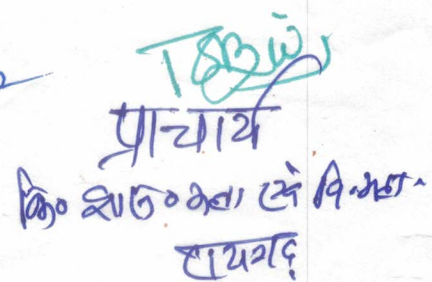 प्राचार्य
कि० शा० कला एवं वि. महा.
रायगढ़